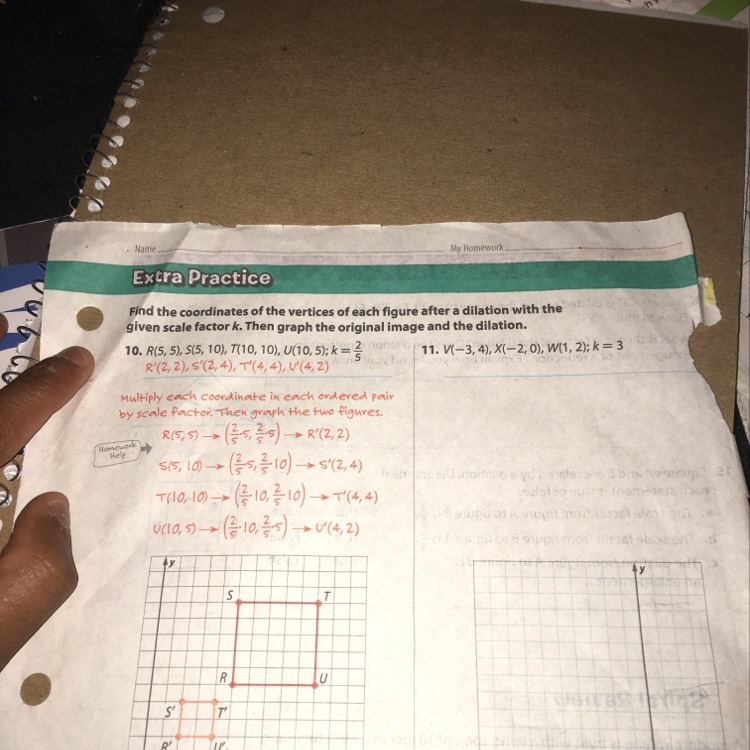 Name
My Homework
Extra Practice
Find the coordinates of the vertices of each figure after a dilation with the
given scale factor k. Then graph the original image and the dilation.
10. R(5, 5), S(5, 10), T(10, 10), U(10, 5); k = 2/5
R'(2, 2), S'(2, 4), T'(4, 4), U'(4, 2)
Multiply each coordinate in each ordered pair
by scale factor. Then graph the two figures.
Homework
Help
R(5, 5) → (2/5·5, 2/5·5) → R'(2, 2)
S(5, 10) → (2/5·5, 2/5·10) → S'(2, 4)
T(10, 10) → (2/5·10, 2/5·10) → T'(4, 4)
U(10, 5) → (2/5·10, 2/5·5) → U'(4, 2)
y
S T
R U
S' T'
R' U'
11. V(−3, 4), X(−2, 0), W(1, 2); k = 3
y